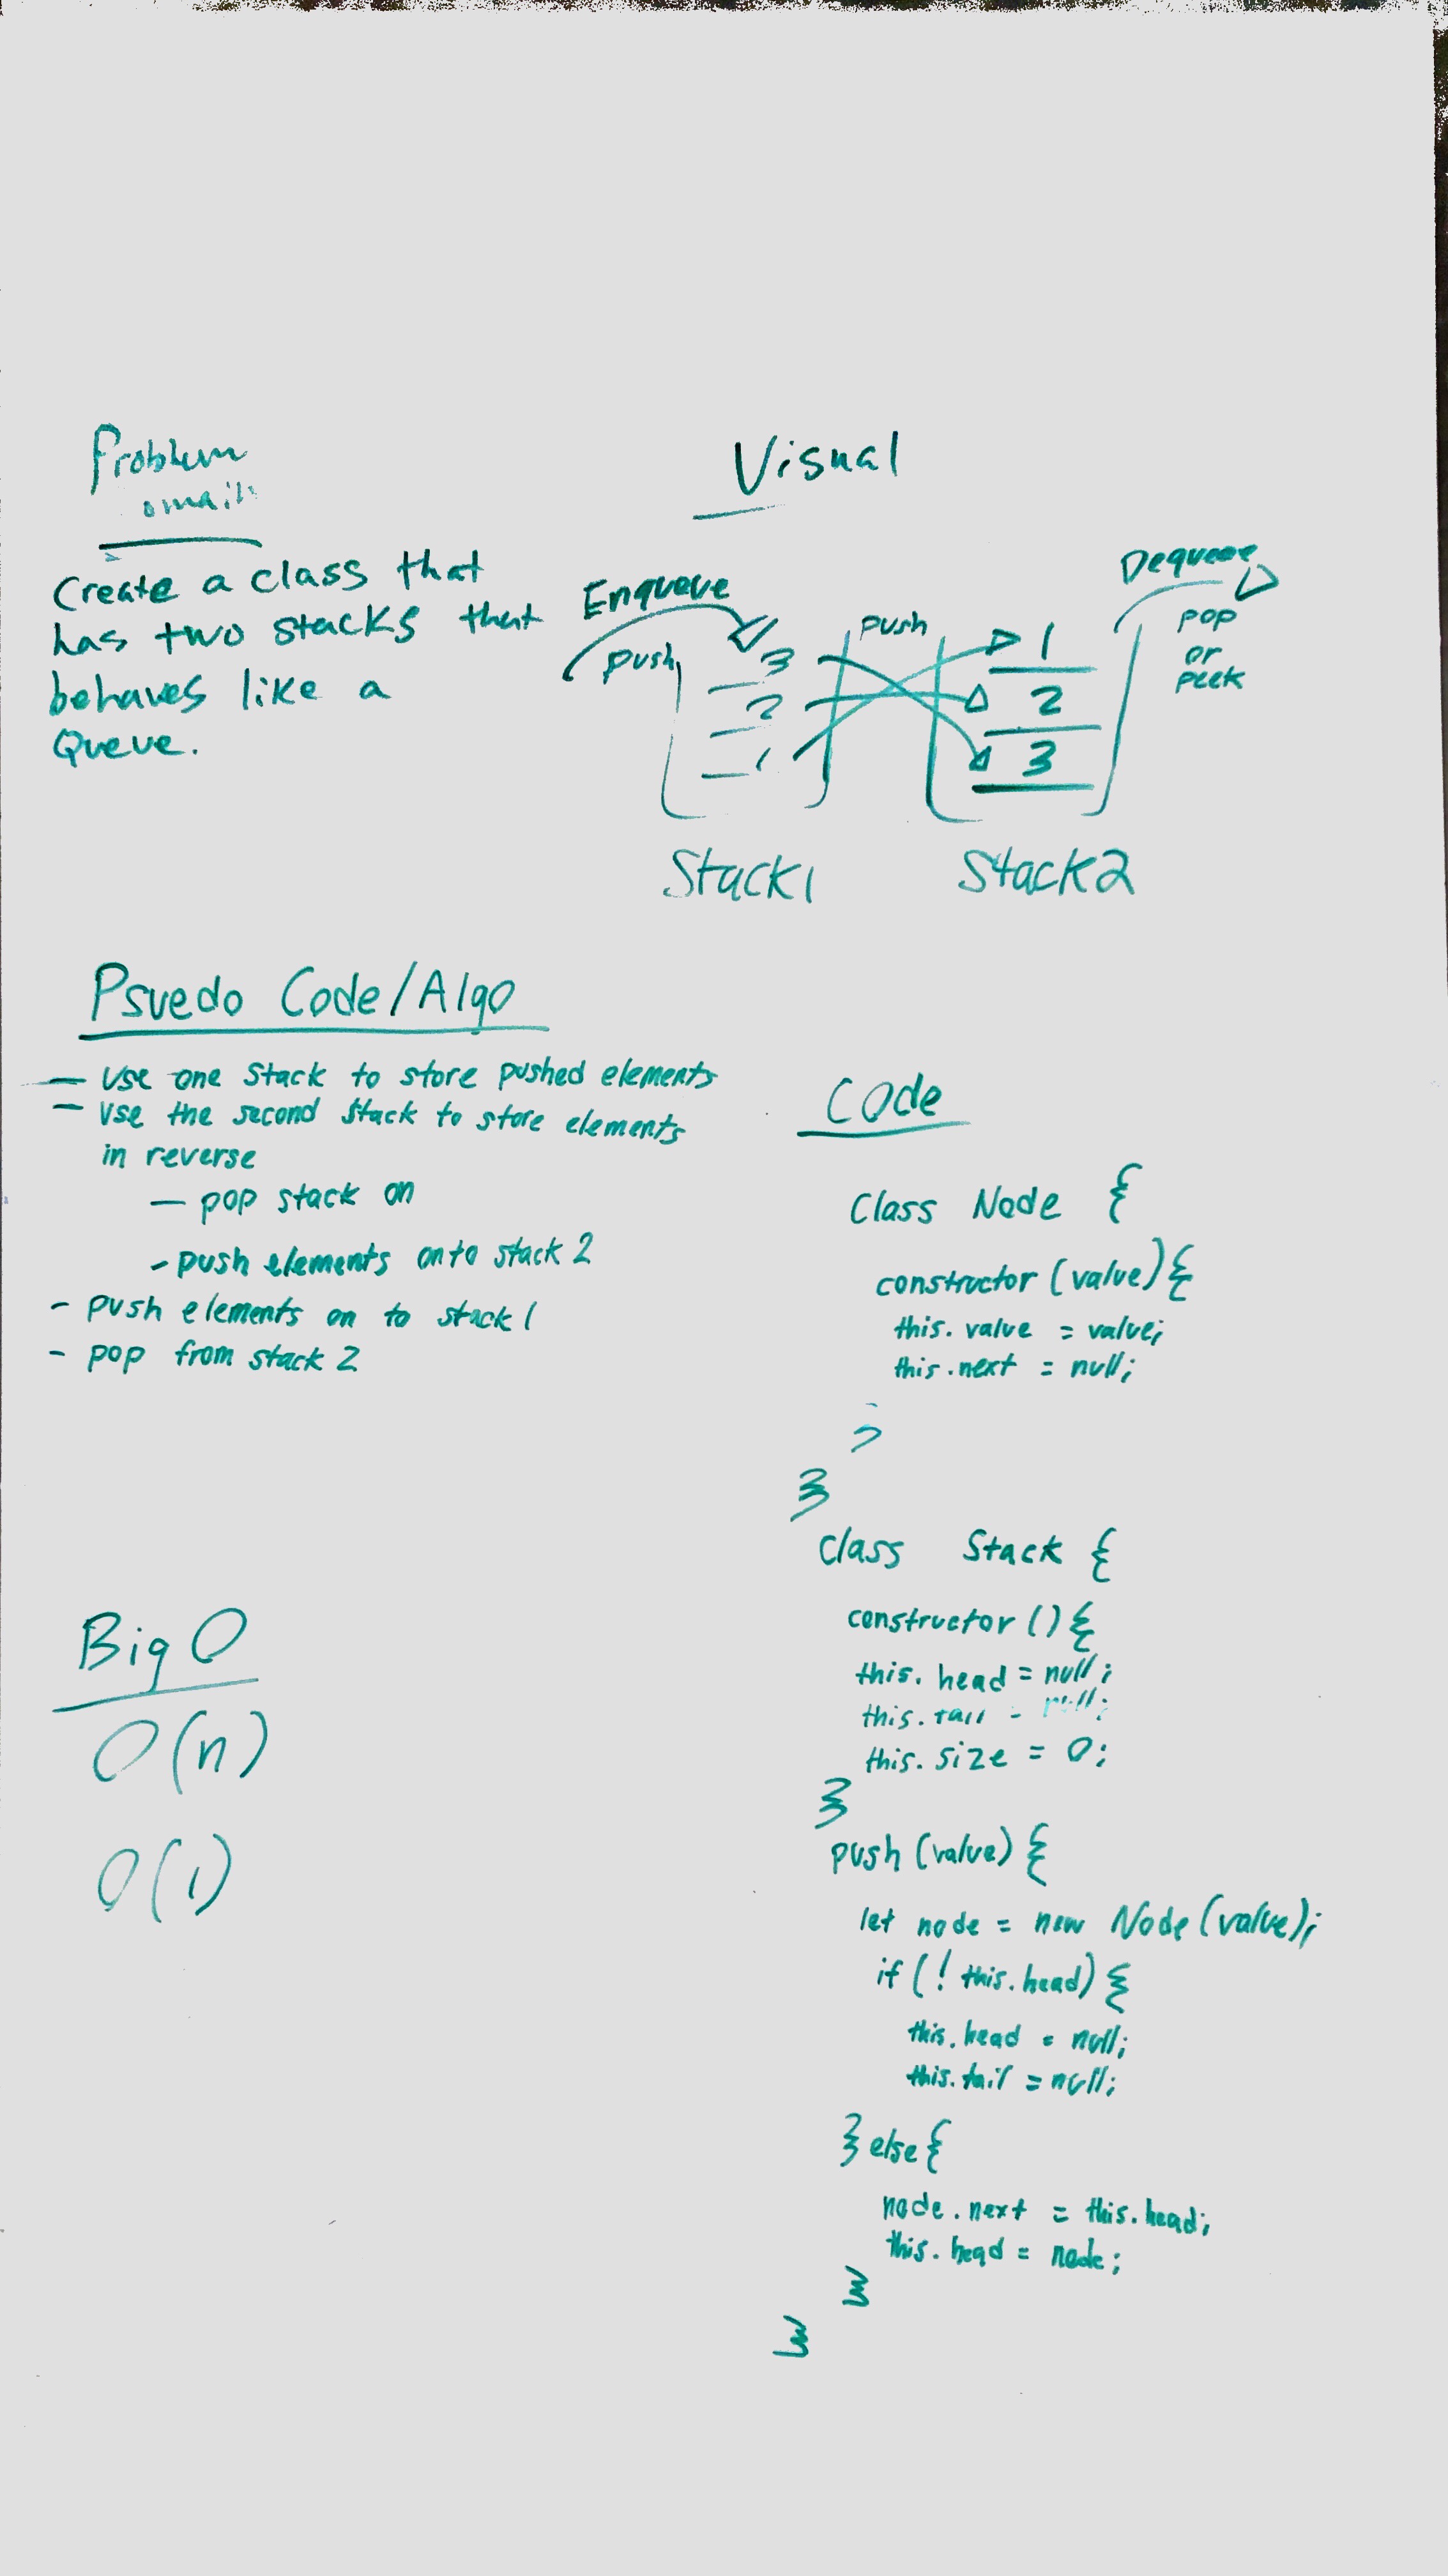 Problem
Create a class that
has two stacks that
behaves like a
Queue.
Visual
Enqueue
Push
3
2
1
push
1
2
3
Dequeue
pop
or
peek
Stack1
Stack2
Psuedo Code/Algo
— Use one Stack to store pushed elements
— Use the second Stack to store elements
in reverse
— pop stack on
- push elements onto stack 2
- push elements on to stack 1
- pop from stack 2
Big O
O(n)
O(1)
Code
Class Node {
constructor (value) {
this. value = value;
this.next = null;
}
}
Class Stack {
constructor () {
this. head = null;
this. tail = null;
this. size = 0;
}
push (value) {
let node = new Node (value);
if (! this. head) {
this. head = null;
this. tail = null;
} else {
node . next = this. head;
this. head = node;
}
}